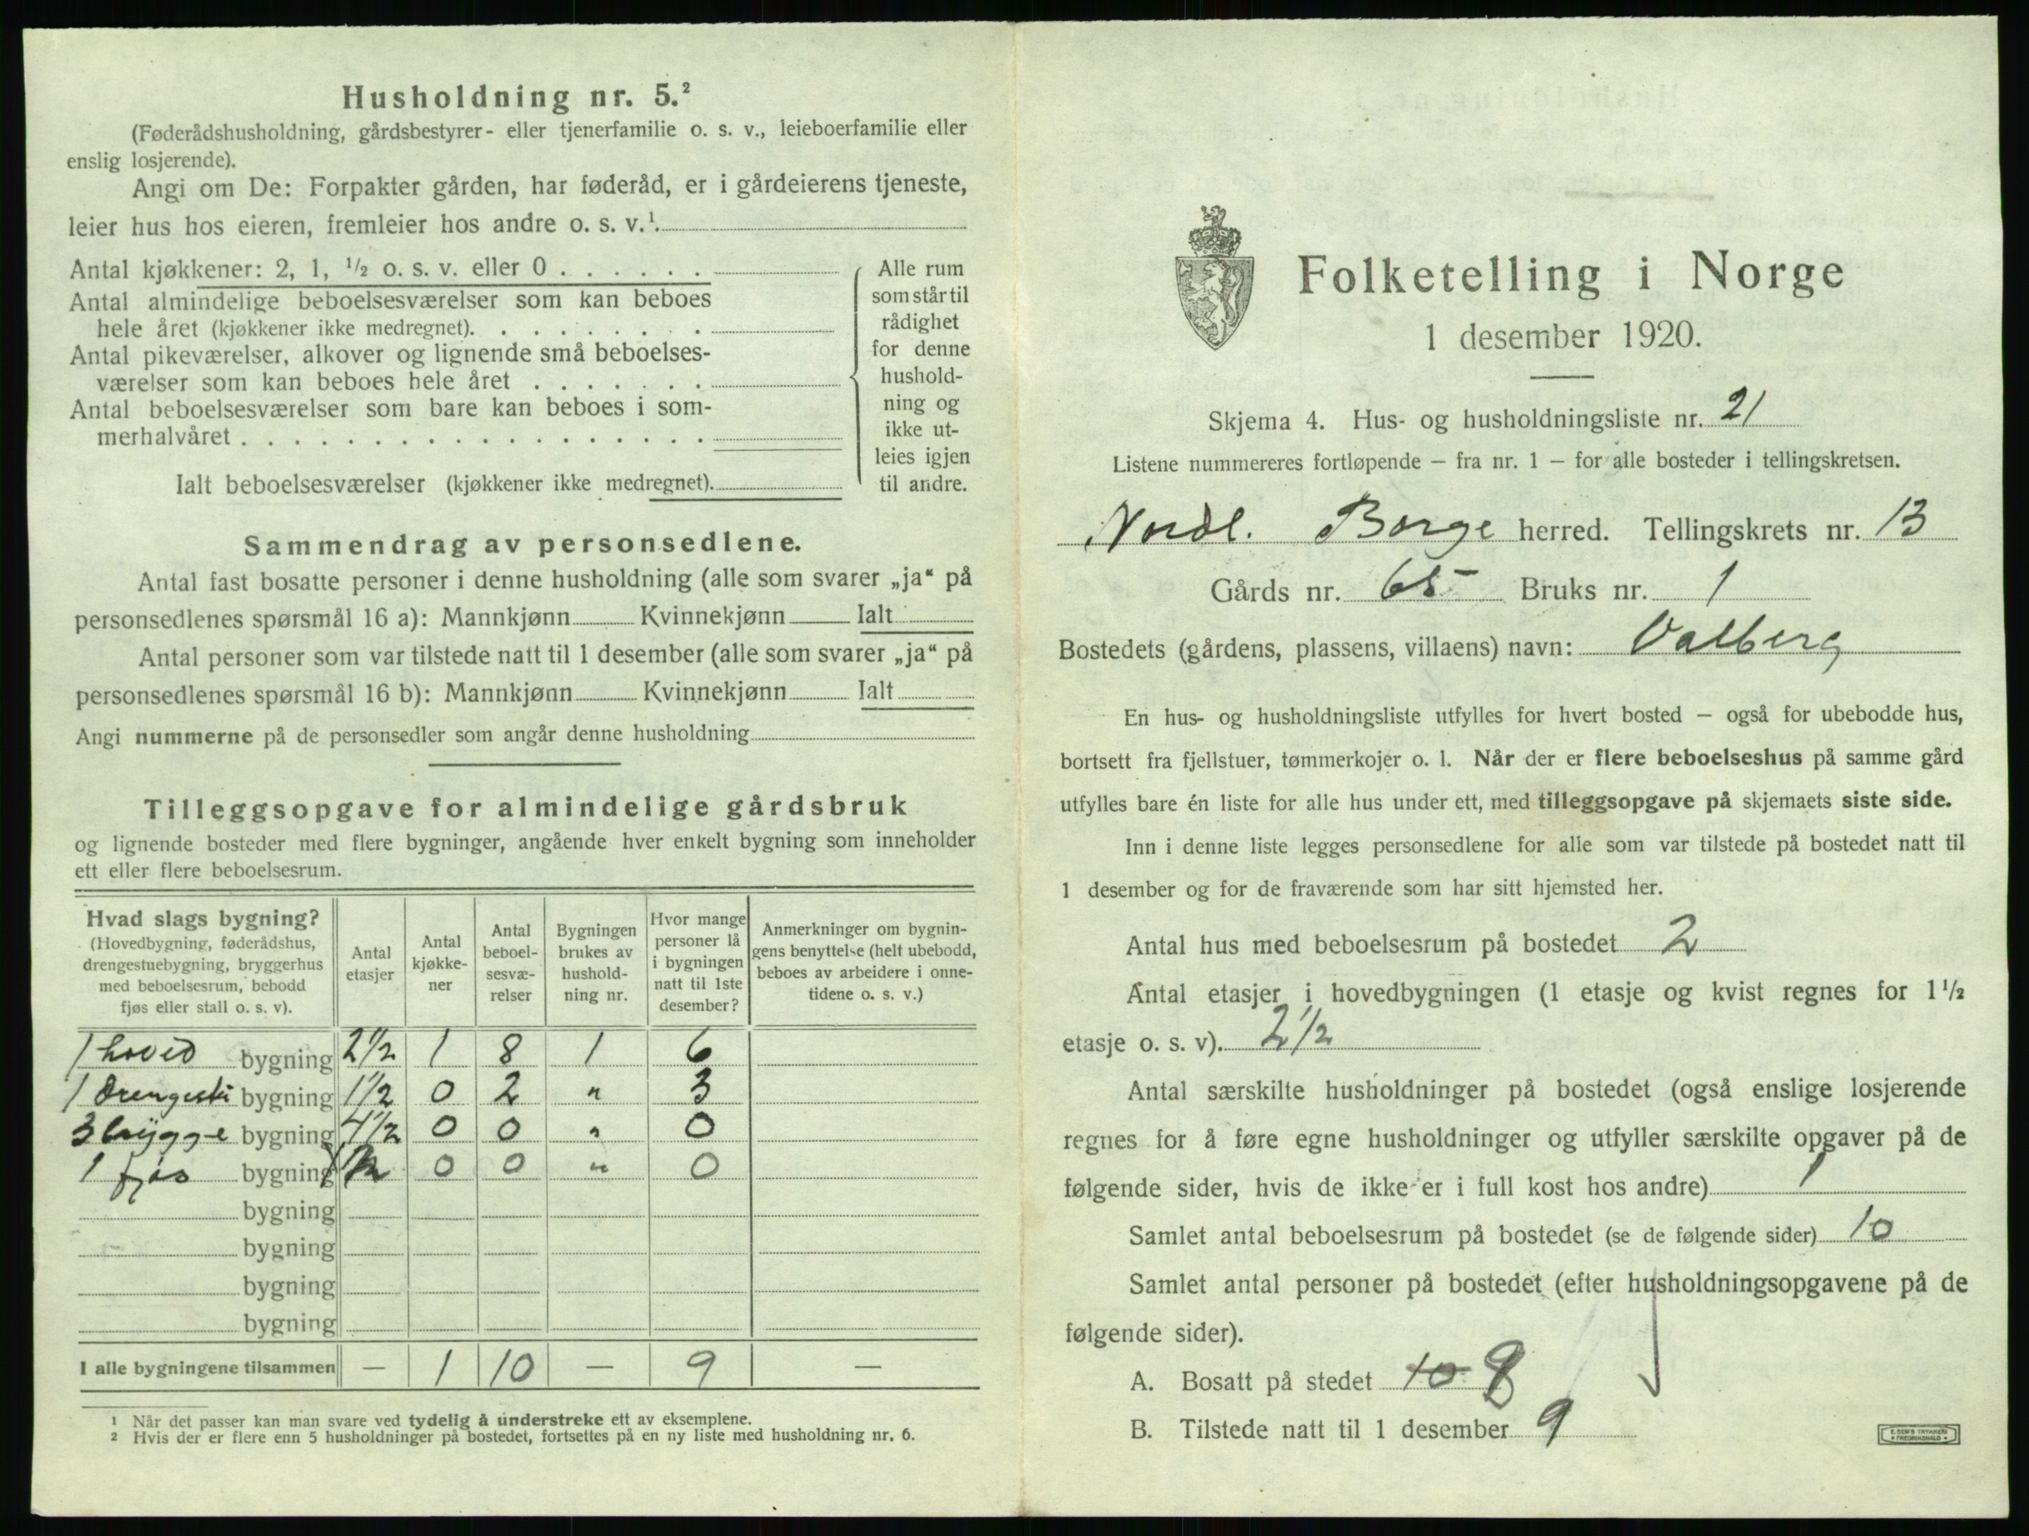 Husholdning nr. 5.²
(Føderådshusholdning, gårdsbestyrer- eller tjenerfamilie o. s. v., leieboerfamilie eller
enslig losjerende).
Angi om De: Forpakter gården, har føderåd, er i gårdeierens tjeneste,
leier hus hos eieren, fremleier hos andre o. s. v.¹.
Antal kjøkkener: 2, 1, ½ o. s. v. eller 0 . . . . . .
Antal almindelige beboelsesværelser som kan beboes
hele året (kjøkkener ikke medregnet). . . . . . . .
Antal pikeværelser, alkover og lignende små beboelses-
værelser som kan beboes hele året . . . . . . .
Antal beboelsesværelser som bare kan beboes i som-
merhalvåret . . . . . . . . . . . . . . . . . .
Ialt beboelsesværelser (kjøkkener ikke medregnet).
Alle rum
som står til
rådighet
for denne
hushold-
ning og
ikke ut-
leies igjen
til andre.
Sammendrag av personsedlene.
Antal fast bosatte personer i denne husholdning (alle som svarer „ja“ på
personsedlenes spørsmål 16 a): Mannkjønn Kvinnekjønn Ialt
Antal personer som var tilstede natt til 1 desember (alle som svarer „ja“ på
personsedlenes spørsmål 16 b): Mannkjønn Kvinnekjønn Ialt
Angi nummerne på de personsedler som angår denne husholdning
Tilleggsopgave for almindelige gårdsbruk
og lignende bosteder med flere bygninger, angående hver enkelt bygning som inneholder
ett eller flere beboelsesrum.
Hvad slags bygning?
(Hovedbygning, føderådshus,
drengestuebygning, bryggerhus
med beboelsesrum, bebodd
fjøs eller stall o. s. v).
Antal
etasjer
Antal
kjøkke-
ner
Antal
beboel-
sesvæ-
relser
Bygningen
brukes av
hushold-
ning nr.
Hvor mange
personer lå
i bygningen
natt til 1ste
desember?
Anmerkninger om bygnin-
gens benyttelse (helt ubebodd,
beboes av arbeidere i onne-
tidene o. s. v.)
1 hoved bygning 2½ 1 8 1 6
1 drengest. bygning 1½ 0 2 " 3
3 brygge bygning 4½ 0 0 " 0
1 fjøs bygning 0 0 " 0
bygning
bygning
bygning
bygning
I alle bygningene tilsammen — 1 10 — 9 —
¹ Når det passer kan man svare ved tydelig å understreke ett av eksemplene.
² Hvis der er flere enn 5 husholdninger på bostedet, fortsettes på en ny liste med husholdning nr. 6.
Folketelling i Norge
1 desember 1920.
Skjema 4. Hus- og husholdningsliste nr. 21
Listene nummereres fortløpende – fra nr. 1 – for alle bosteder i tellingskretsen.
Nordl. Borge herred. Tellingskrets nr. 13
Gårds nr. 65 Bruks nr. 1
Bostedets (gårdens, plassens, villaens) navn: Valberg
En hus- og husholdningsliste utfylles for hvert bosted – også for ubebodde hus,
bortsett fra fjellstuer, tømmerkojer o. l. Når der er flere beboelseshus på samme gård
utfylles bare én liste for alle hus under ett, med tilleggsopgave på skjemaets siste side.
Inn i denne liste legges personsedlene for alle som var tilstede på bostedet natt til
1 desember og for de fraværende som har sitt hjemsted her.
Antal hus med beboelsesrum på bostedet 2
Antal etasjer i hovedbygningen (1 etasje og kvist regnes for 1½
etasje o. s. v). 2½
Antal særskilte husholdninger på bostedet (også enslige losjerende
regnes for å føre egne husholdninger og utfyller særskilte opgaver på de
følgende sider, hvis de ikke er i full kost hos andre) 1
Samlet antal beboelsesrum på bostedet (se de følgende sider) 10
Samlet antal personer på bostedet (efter husholdningsopgavene på de
følgende sider).
A. Bosatt på stedet 10
B. Tilstede natt til 1 desember 9
E. SEM'S TRYKKERI
FREDRIKSHALD